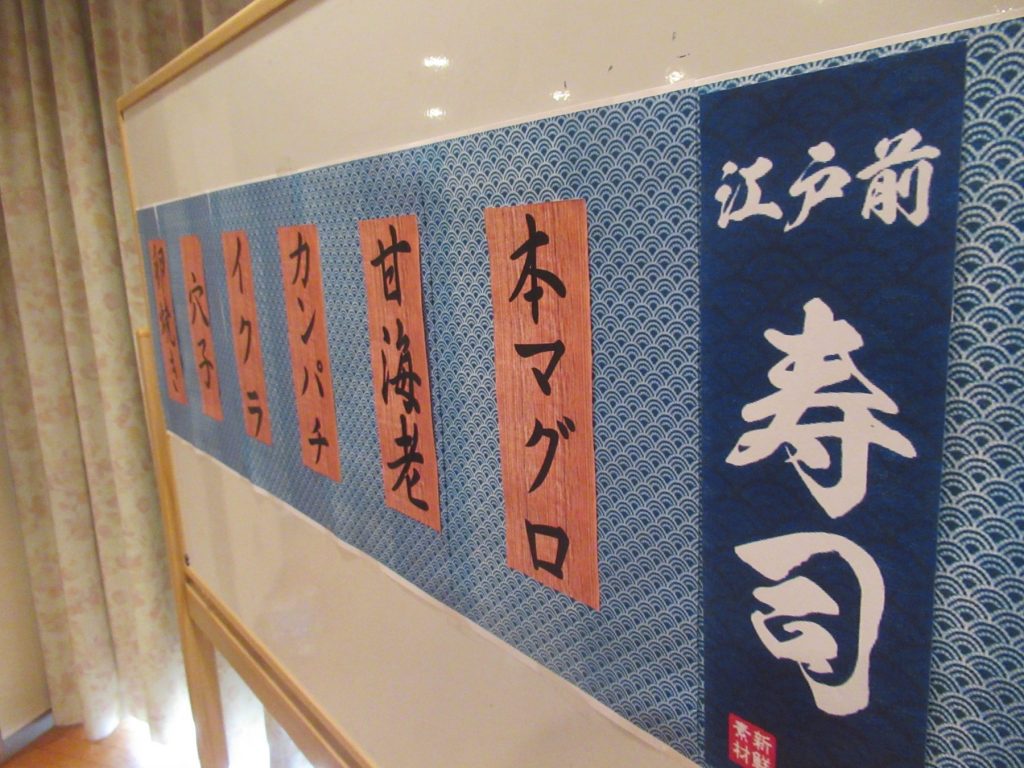 江戸前
寿司
新鮮
素材
本マグロ
甘海老
カンパチ
イクラ
穴子
卵焼き